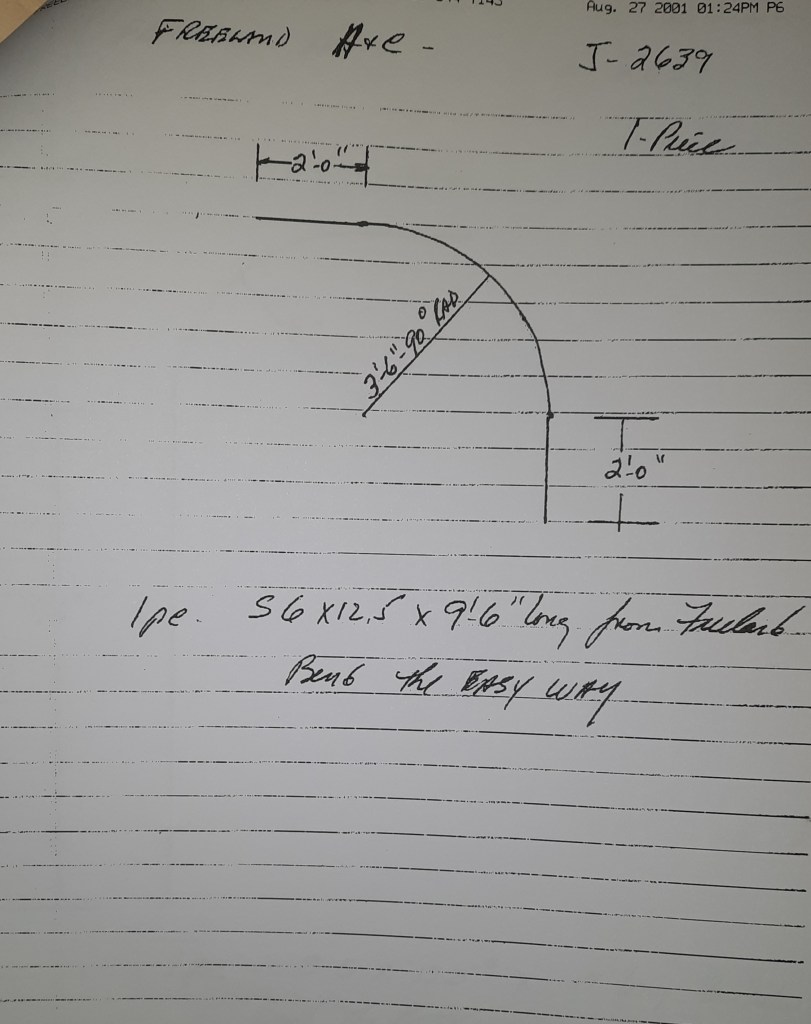 Aug. 27 2001 01:24PM P6
FREELAND A+C -
J-2639
1-Piece
2'-0"
3'-6"-90° RAD
2'-0"
1pc. S6 x 12.5 x 9'-6" long from
Bend the EASY WAY